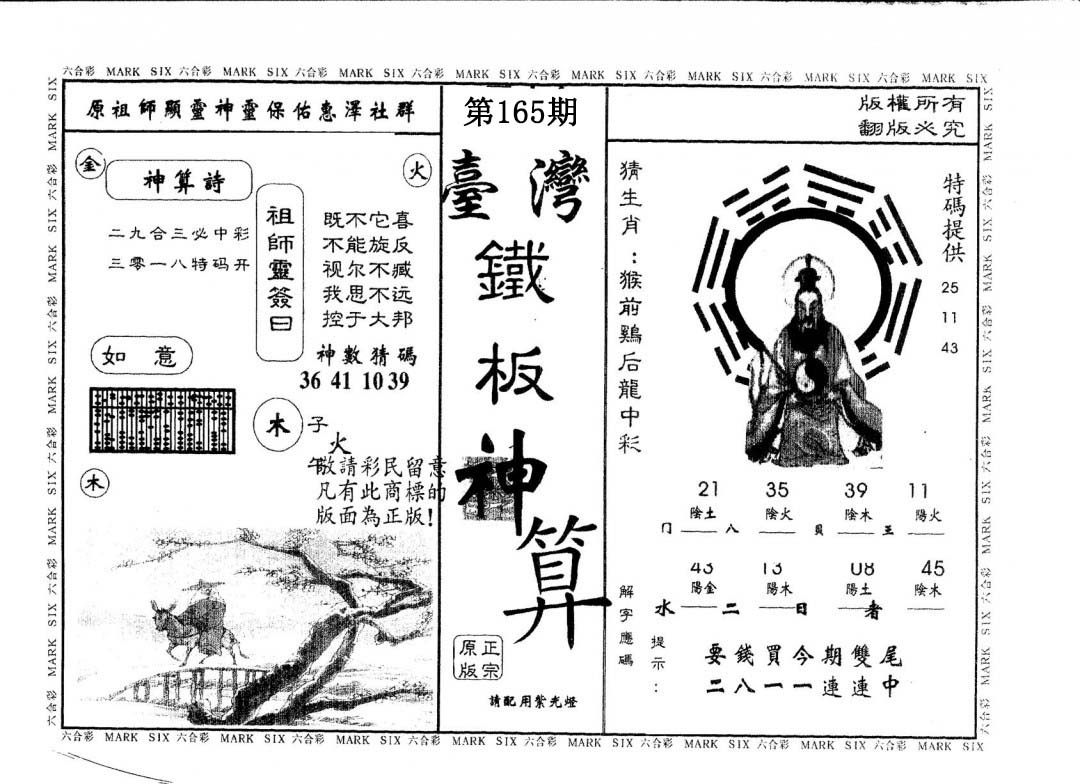 六合彩 MARK SIX 六合彩 MARK SIX 六合彩 MARK SIX 六合彩 MARK SIX 六合彩 MARK SIX 六合彩 MARK SIX 六合彩 MARK SIX 六合彩 MARK SIX
原祖師顯靈神靈保佑惠澤社群
金
火
神算詩
二九合三必中彩
三零一八特码开
祖師靈簽曰
既不它喜
不能旋反
视尔不臧
我思不远
控于大邦
如意
神數猜碼
36 41 10 39
木
子
火
午
木
敬請彩民留意
凡有此商標的
版面為正版!
第165期
臺灣
鐵
板
神
算
正宗
原版
請配用紫光燈
版權所有
翻版必究
猜生肖:猴前鷄后龍中彩
特碼提供
25
11
43
21 35 39 11
陰土 陰火 陰木 陽火
冂 八 貝 王
43 13 08 45
陽金 陽木 陽土 陰木
水 二 日 者
解字應碼
提示:
要錢買今期雙尾
二八一一連連中
六合彩 MARK SIX 六合彩 MARK SIX 六合彩 MARK SIX 六合彩 MARK SIX 六合彩 MARK SIX 六合彩 MARK SIX 六合彩 MARK SIX 六合彩 MARK SIX